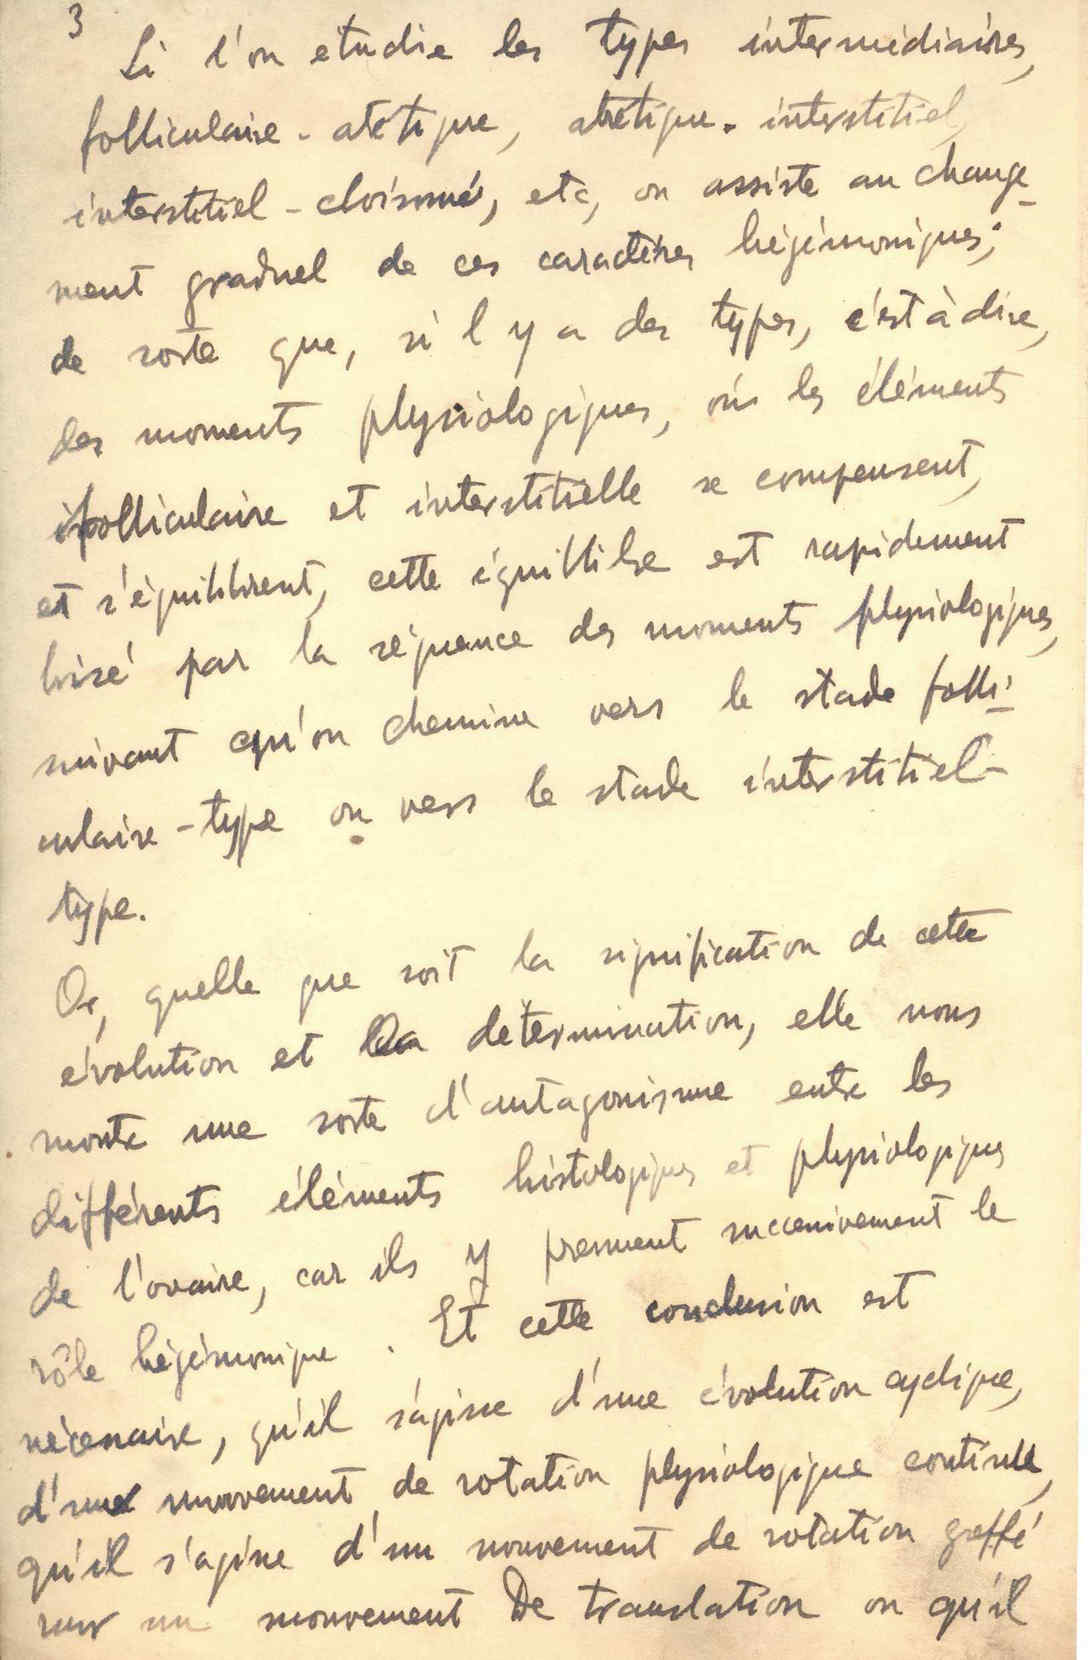 3
Si l'on étudie les types intermédiaires,
folliculaire - atrétique, atrétique - interstitiel,
interstitiel - cloisonné, etc, on assiste au change-
ment graduel de ces caractères hégémoniques;
de sorte que, si l y a des types, c'est à dire,
des moments physiologiques, où les éléments
folliculaire et interstitielle se compensent,
et s'équilibrent, cette équilibre est rapidement
brisé par la séquence des moments physiologiques,
suivant qu'on chemine vers le stade folli-
culaire - type ou vers le stade interstitiel-
type.
Or, quelle que soit la signification de cette
évolution et la détermination, elle nous
montre une sorte d'antagonisme entre les
différents éléments histologiques et physiologiques
de l'ovaire, car ils y prennent successivement le
rôle hégémonique. Et cette conclusion est
nécessaire, qu'il s'agisse d'une évolution cyclique,
d'un mouvement de rotation physiologique continue,
qu'il s'agisse d'un mouvement de rotation greffé
sur un mouvement De translation ou qu'il